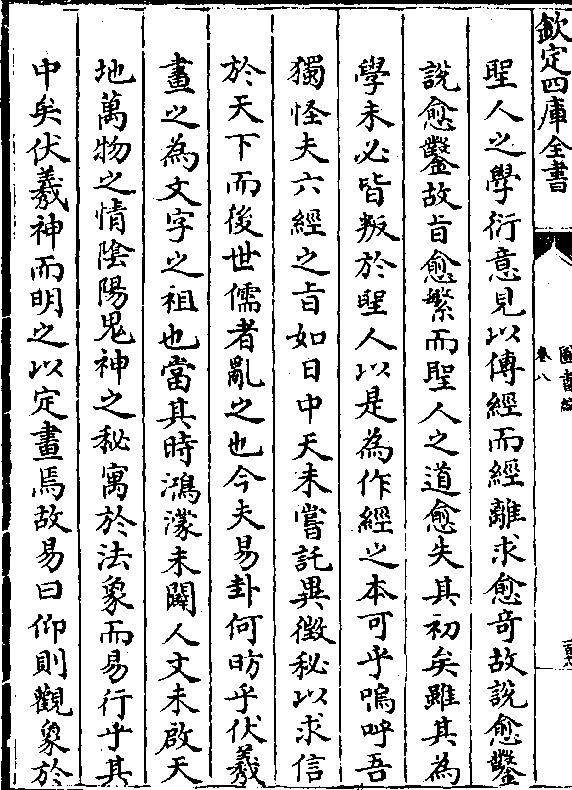 欽定四庫全書
圖書編
卷八
聖人之學衍意見以傳經而經離求愈竒故說愈鑿
說愈鑿故㫖愈繁而聖人之道愈失其初矣雖其為
學未必皆叛於聖人以是為作經之本可乎嗚呼吾
獨怪夫六經之㫖如日中天未嘗託異徵秘以求信
於天下而後世儒者亂之也今夫易卦何昉乎伏羲
畫之為文字之祖也當其時鴻濛未闢人文未啟天
地萬物之情陰陽鬼神之秘寓於法象而易行乎其
中矣伏羲神而明之以定畫焉故易曰仰則觀象於